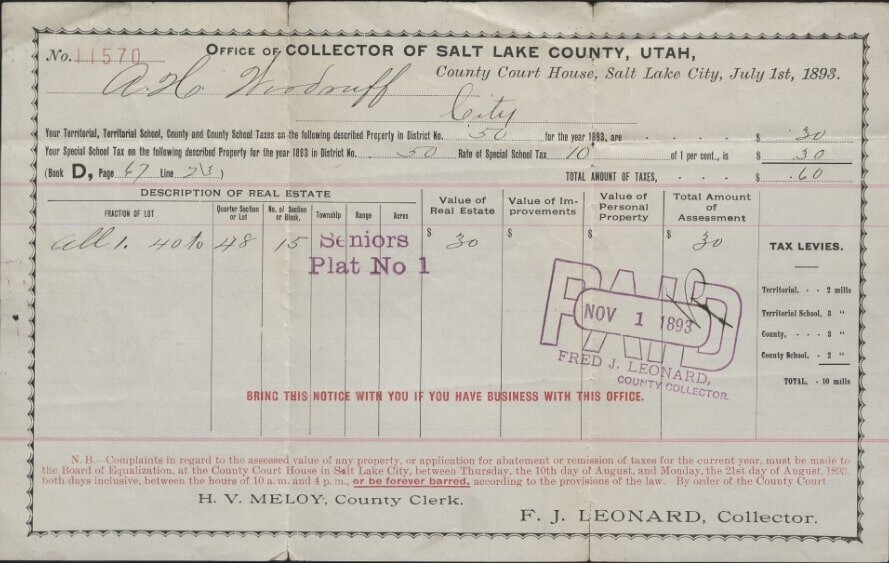 No. 11570
OFFICE OF COLLECTOR OF SALT LAKE COUNTY, UTAH,
County Court House, Salt Lake City, July 1st, 1893.
A. H. Woodruff
City
Your Territorial, Territorial School, County and County School Taxes on the following described Property in District No. 50 for the year 1893, are $ 30
Your Special School Tax on the following described Property for the year 1893 in District No. 50 Rate of Special School Tax 10 of 1 per cent., is $ 30
(Book D, Page 67 Line 23) TOTAL AMOUNT OF TAXES, $ .60
DESCRIPTION OF REAL ESTATE
FRACTION OF LOT
Quarter Section or Lot
No. of Section or Block.
Township
Range
Acres
Value of Real Estate
Value of Improvements
Value of Personal Property
Total Amount of Assessment
All 1. 40 to 48 15 Seniors $ 30 $ $ $ 30
Plat No 1
TAX LEVIES.
Territorial, - - 2 mills
Territorial School, 3 "
County, - - - - 3 "
County School, - 2 "
TOTAL, - 10 mills
PAID
NOV 1 1893
FRED J. LEONARD,
COUNTY COLLECTOR.
BRING THIS NOTICE WITH YOU IF YOU HAVE BUSINESS WITH THIS OFFICE.
N. B.—Complaints in regard to the assessed value of any property, or application for abatement or remission of taxes for the current year, must be made to
the Board of Equalization, at the County Court House in Salt Lake City, between Thursday, the 10th day of August, and Monday, the 21st day of August, 1893,
both days inclusive, between the hours of 10 a. m. and 4 p. m., or be forever barred, according to the provisions of the law. By order of the County Court.
H. V. MELOY, County Clerk.
F. J. LEONARD, Collector.